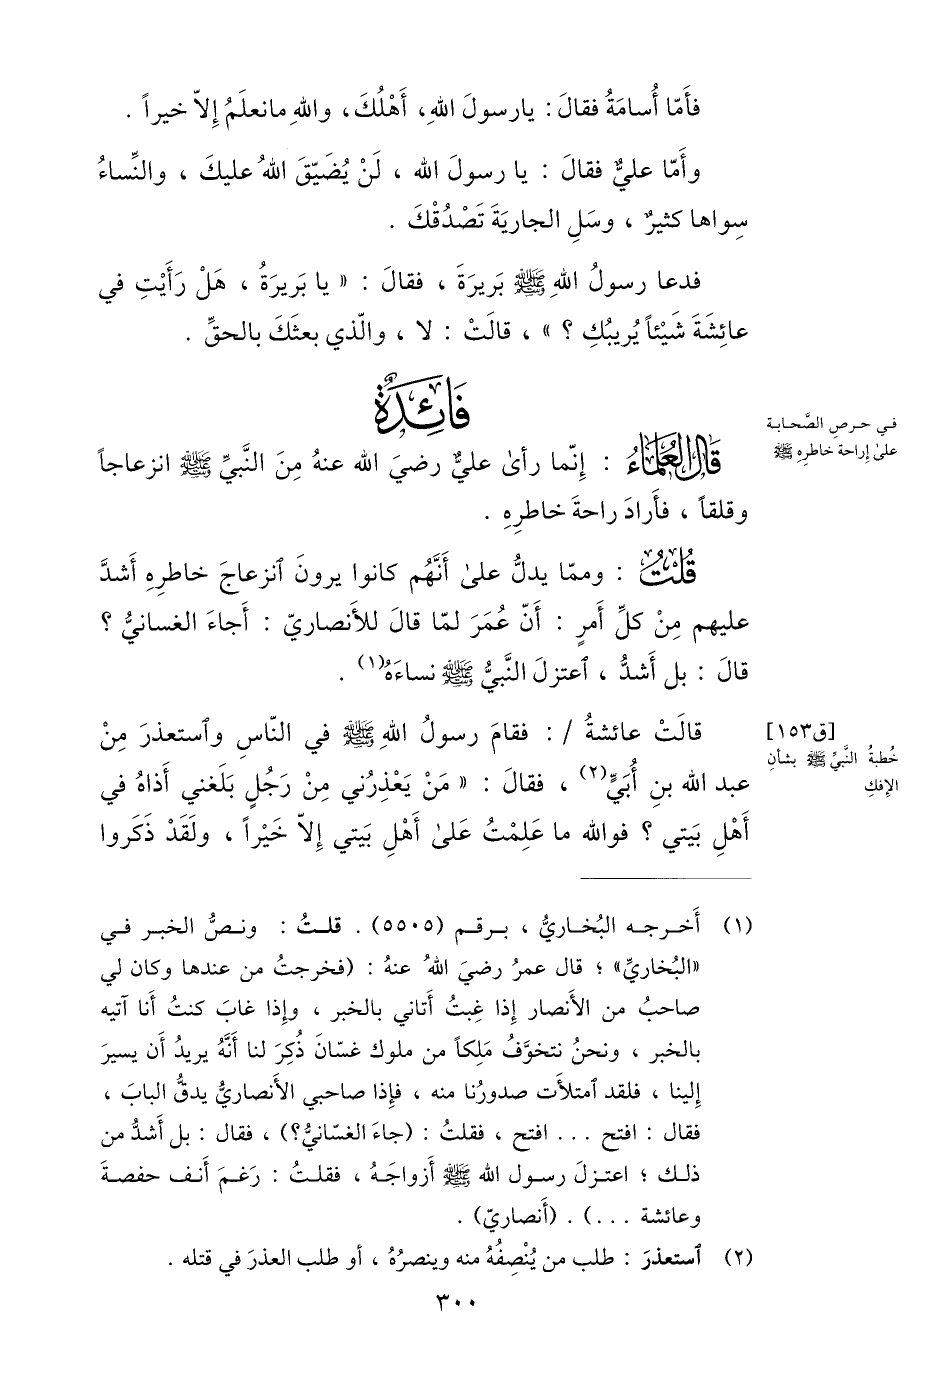 فأَمّا أُسامَةُ فقالَ : يارسولَ اللهِ، أَهْلُكَ، واللهِ مانعلَمُ إلاّ خيراً .
وأَمّا عليٌّ فقالَ : يا رسولَ الله ، لَنْ يُضَيّقَ اللهُ عليكَ ، والنِّساءُ
سِواها كثيرٌ ، وسَلِ الجاريَةَ تَصْدُقْكَ .
فدعا رسولُ اللهِ ﷺ بَريرَةَ ، فقالَ : « يا بَريرَةُ ، هَلْ رَأَيْتِ في
عائِشَةَ شَيْئاً يُريبُكِ ؟ » ، قالَتْ : لا ، والّذي بعثَكَ بالحقِّ .
فَائِدَةٌ
في حرصِ الصَّحابة
علىٰ إراحة خاطرِهِ ﷺ
قَالَ العُلَمَاءُ : إنّما رأىٰ عليٌّ رضيَ الله عنهُ مِنَ النَّبيِّ ﷺ انزعاجاً
وقلقاً ، فأَرادَ راحةَ خاطرِهِ .
قُلْتُ : وممّا يدلُّ علىٰ أَنَّهُم كانوا يرونَ ٱنزعاجَ خاطرِهِ أَشدَّ
عليهم مِنْ كلِّ أَمرٍ : أَنّ عُمَرَ لمّا قالَ للأَنصاريّ : أَجاءَ الغسانيُّ ؟
قالَ : بل أَشدُّ ، ٱعتزلَ النَّبيُّ ﷺ نساءَهُ(١) .
[ق١٥٣]
خُطبةُ النَّبيِّ ﷺ بشأنِ
الإفكِ
قالَتْ عائشةُ / : فقامَ رسولُ اللهِ ﷺ في النّاسِ وٱستعذرَ مِنْ
عبد الله بنِ أُبَيٍّ(٢) ، فقالَ : « مَنْ يَعْذِرُني مِنْ رَجُلٍ بَلَغني أَذاهُ في
أَهْلِ بَيتي ؟ فوالله ما عَلِمْتُ عَلىٰ أَهْلِ بَيتي إلاّ خَيْراً ، ولَقَدْ ذَكَروا
(١) أَخرجـه البُخـاريُّ ، بـرقـم (٥٥٠٥) . قلـتُ : ونـصُّ الخبـر فـي
«البُخاريِّ» ؛ قال عمرُ رضيَ اللهُ عنهُ : (فخرجتُ من عندها وكان لي
صاحبُ من الأَنصار إذا غِبتُ أَتاني بالخبر ، وإذا غابَ كنتُ أنا آتيه
بالخبر ، ونحنُ نتخوَّفُ مَلِكاً من ملوك غسّانَ ذُكِرَ لنا أَنَّهُ يريدُ أَن يسيرَ
إلينا ، فلقد ٱمتلأَت صدورُنا منه ، فإذا صاحبي الأَنصاريُّ يدقُّ البابَ ،
فقال : افتح ... افتح ، فقلتُ : (جاءَ الغسّانيُّ؟) ، فقال : بل أَشدُّ من
ذلـك ؛ اعتـزلَ رسـول الله ﷺ أَزواجَـهُ ، فقلـتُ : رَغـمَ أَنـف حفصـةَ
وعائشة ...) . (أَنصاريّ) .
(٢) ٱستعذرَ : طلب من يُنْصِفُهُ منه وينصرُهُ ، أو طلب العذرَ في قتله .
٣٠٠